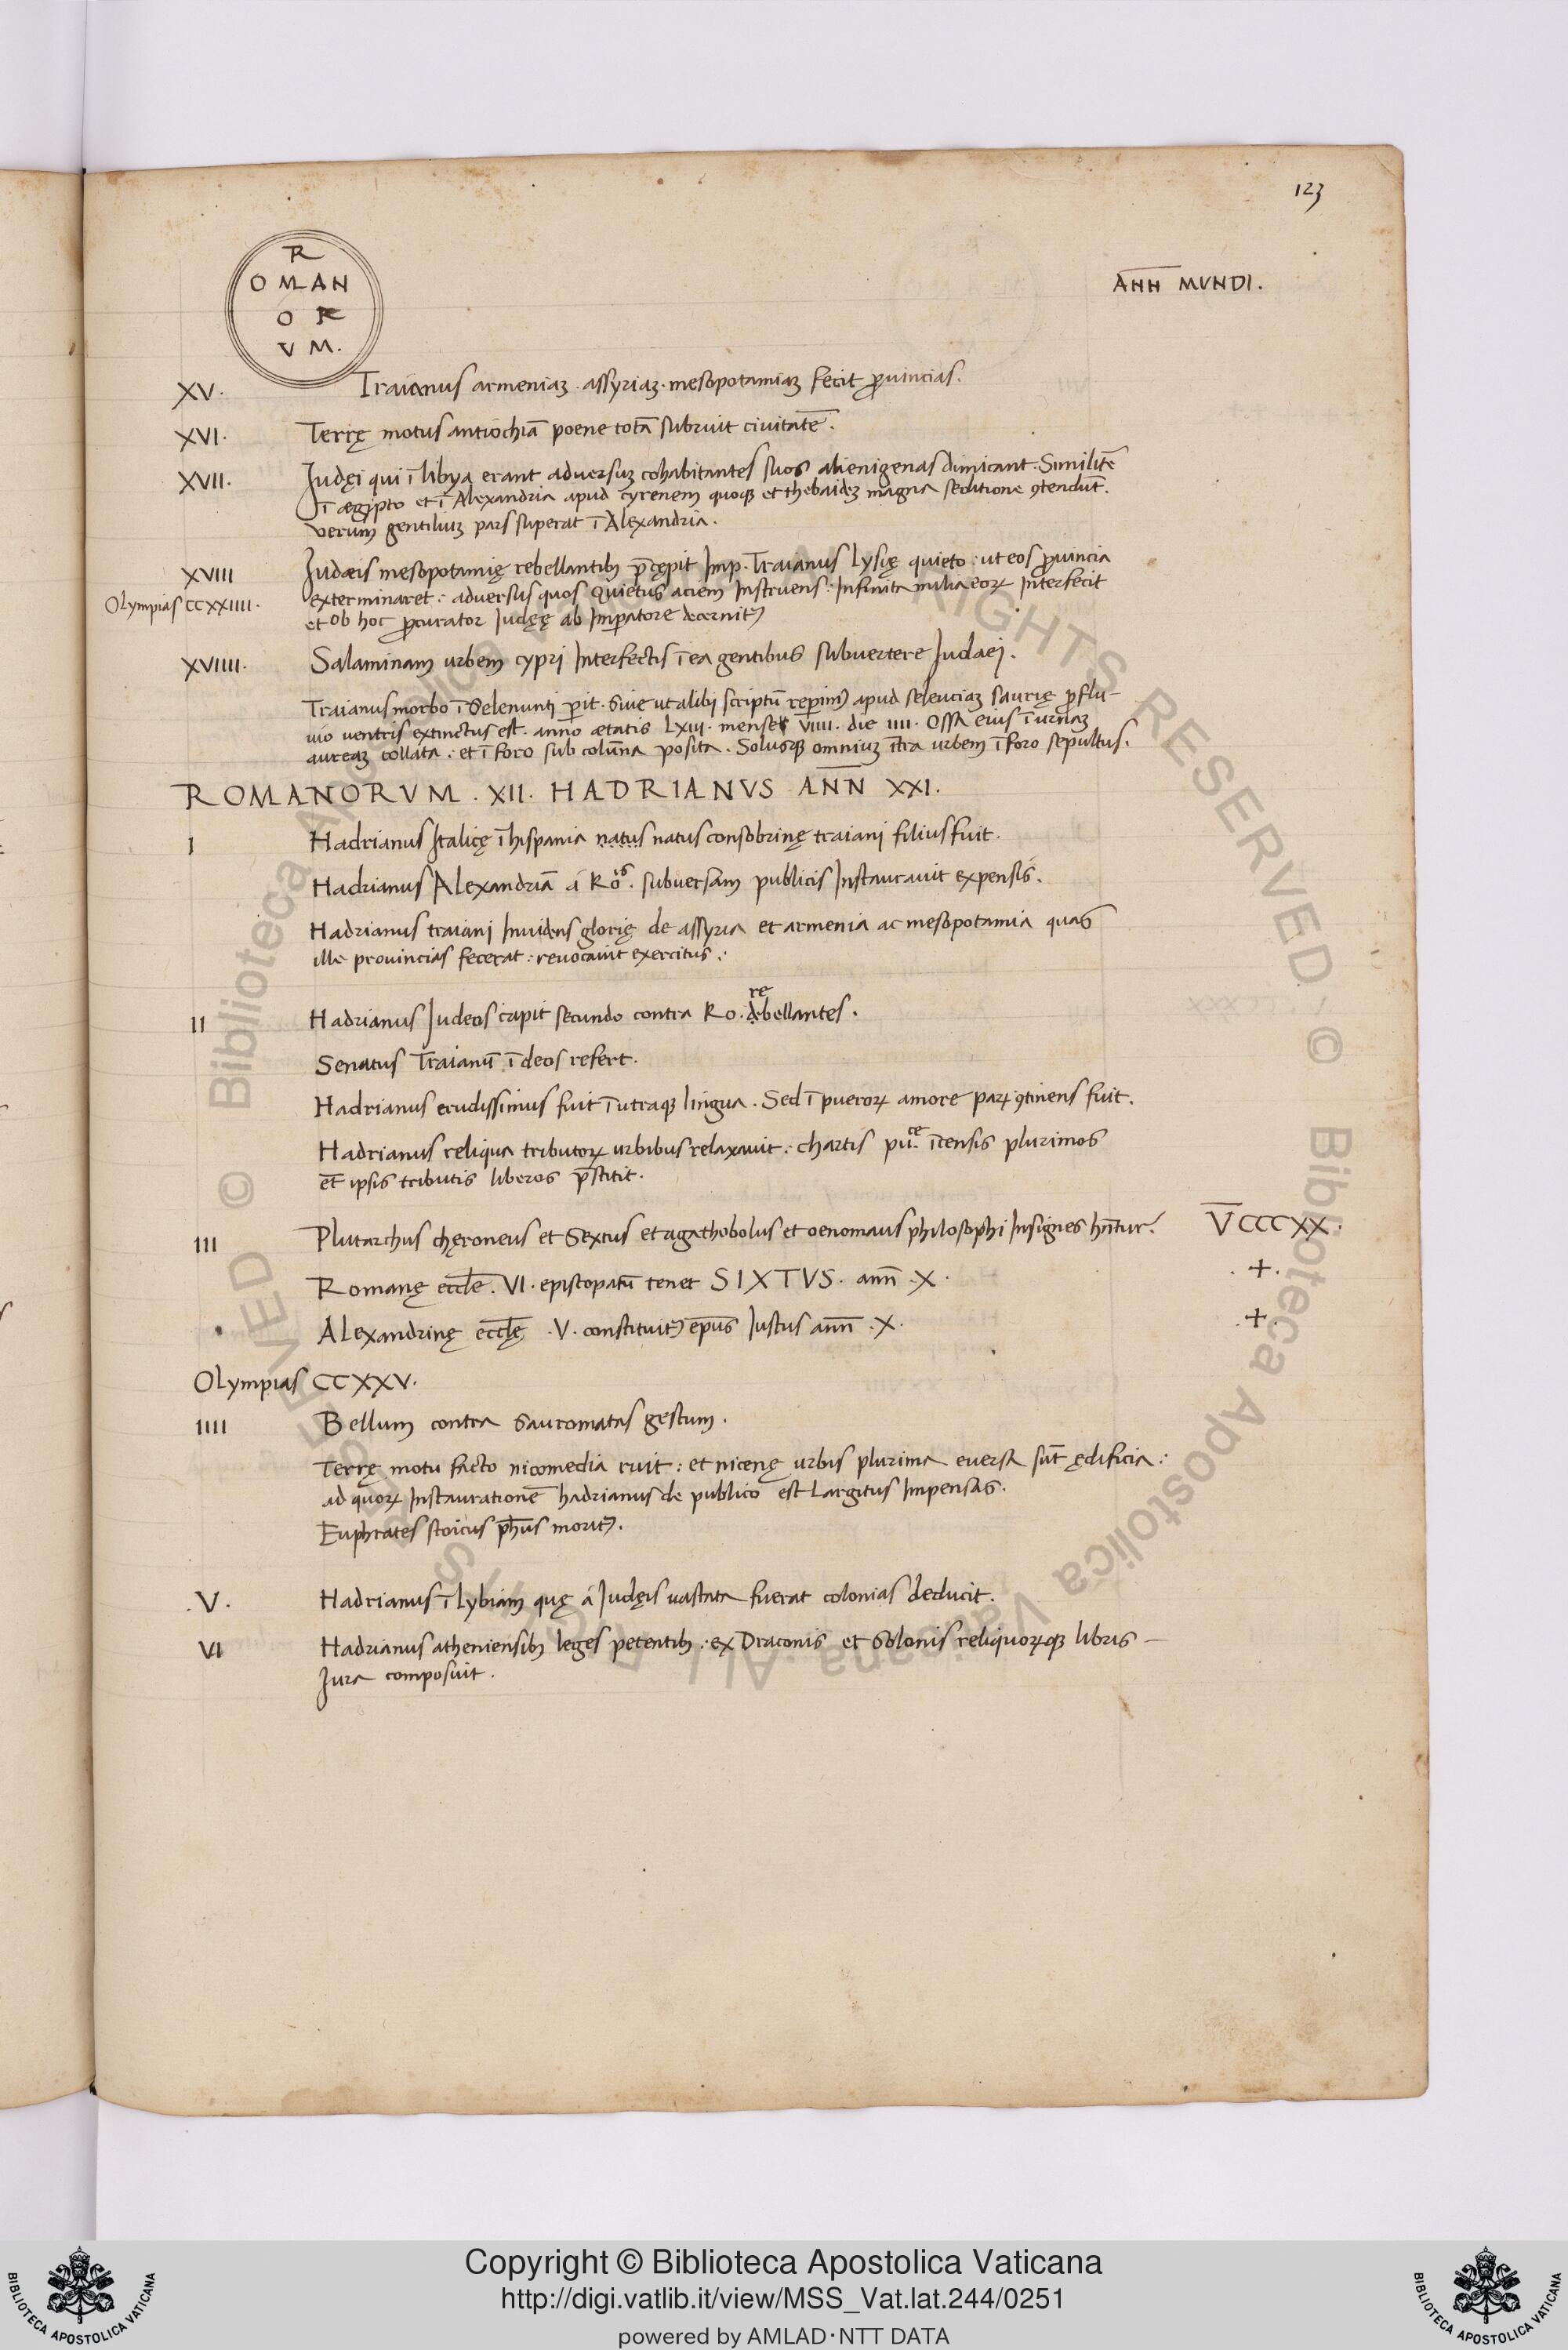 123
R
OMAN
OR
VM.
ANN MVNDI.
XV. Traianus armeniaꝫ. assyriaꝫ. mesopotamiaꝫ fecit ꝓuincias.
XVI. Terrę motus antiochiā poene totā subruit ciuitatē.
XVII. Iudęi qui ī libya erant adversuꝫ cohabitantes suos alienigenas dimicant. Similitē
ī ægypto et ī Alexandria apud cyrenem quoqꝫ et thebaideꝫ magna seditione ꝯtendūt.
verum gentiliuꝫ pars superat ī Alexandria.
XVIII Iudæis mesopotamię rebellantibꝫ p̄cępit Imp. Traianus Lysię quieto: ut eos ꝓuincia
Olympias CCXXIIII. exterminaret: adversus quos Quietus aciem Instruens: Infinita milia eoꝝ Interfecit
et ob hoc ꝓcurator Iudęę ab Imꝑatore decernit᷑
XVIIII. Salaminam urbem cypri Interfectis ī ea gentibus subvertere Judaei.
Traianus morbo ī Selenunti ꝑit. Sive ut alibi scriptū reꝑim᷒ apud seleuciaꝫ saurię ꝓflu-
uio ventris extinctus est. anno ætatis LXIII. mense VIIII. die IIII. Ossa eius ī urnaꝫ
aureaꝫ collata: et ī foro sub colūna posita. Solusqꝫ omniuꝫ ītra urbem ī foro sepultus.
ROMANORVM. XII. HADRIANVS AN̄N XXI.
I Hadrianus Italicę ī hispania natus natus consobrinę traiani filius fuit.
Hadrianus Alexandriā á Roīs. subversam publicis Instauravit expensis.
Hadrianus traiani Invidens glorię de assyria et armenia ac mesopotamia quas
ille provincias fecerat: revocavit exercitus:
re
II Hadrianus Judeos capit secundo contra Ro. debellantes.
Senatus Traianū ī deos refert.
Hadrianus erudissimus fuit ī utraqꝫ lingua. Sed ī pueroꝝ amore paꝝ ꝯtinens fuit.
Hadrianus reliqua tributoꝝ urbibus relaxavit: chartis pu.ce īcensis plurimos
et̄ ipsis tributis liberos p̄stitit.
III Plutarchus chęroneus et Sextus et agathobolus et oenomaus philosophi Insignes hn̄tur. V̄CCCXX.
Romanę eccle̅. VI. episcopatū tenet SIXTVS. ann̄ .X. .+.
Alexandrinę ecclę̅ .V. constituit᷑ ep̄us Iustus ann̄ .X. .+.
Olympias CCXXV.
IIII Bellum contra Sauromatas gestum.
Terrę motu facto nicomedia ruit: et nicenę urbis plurima eversa sūt ędificia:
ad quoꝝ Instaurationē hadrianus de publico est Largitus Impensas.
Euphrates stoicus ph̄us morit᷑.
.V. Hadrianus ī Lybiam quę á Iudęis vastata fuerat colonias deducit.
VI Hadrianus atheniensibꝫ leges petentibꝫ: ex Draconis et Solonis reliquoꝝqꝫ libris —
Jura composuit.
© Biblioteca Apostolica Vaticana ALL RIGHTS RESERVED
Copyright © Biblioteca Apostolica Vaticana
http://digi.vatlib.it/view/MSS_Vat.lat.244/0251
powered by AMLAD·NTT DATA
BIBLIOTECA APOSTOLICA VATICANA
BIBLIOTECA APOSTOLICA VATICANA